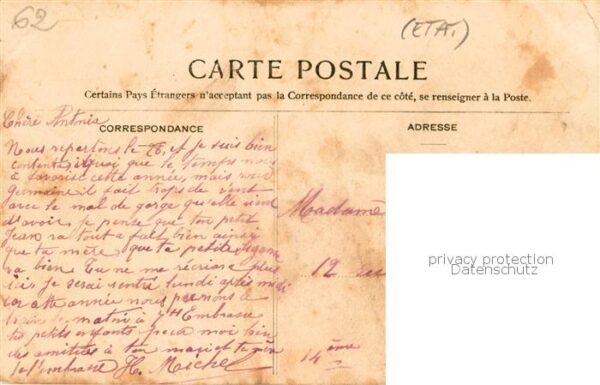 62
(ETAT.)
CARTE POSTALE
Certains Pays Étrangers n'acceptant pas la Correspondance de ce côté, se renseigner à la Poste.
CORRESPONDANCE
ADRESSE
Chère
Nous repartons le et je suis bien
contente quoi que le temps nous
a favorisé cette année, mais
Germaine il fait trop de vent
avec le mal de gorge qu'elle vient
d'avoir. Je pense que ton petit
Jean va tout a fait bien ainsi
que ta mère, que ta petite
va bien. Tu ne me plus
ici. Je serai lundi après midi
car cette année nous prenons le
matin à 7H Embrasse
tes petits enfants pour moi bien
des amitiés à ton mari et
t'embrasse H. Michel
Madame
12
14ème
privacy protection
Datenschutz